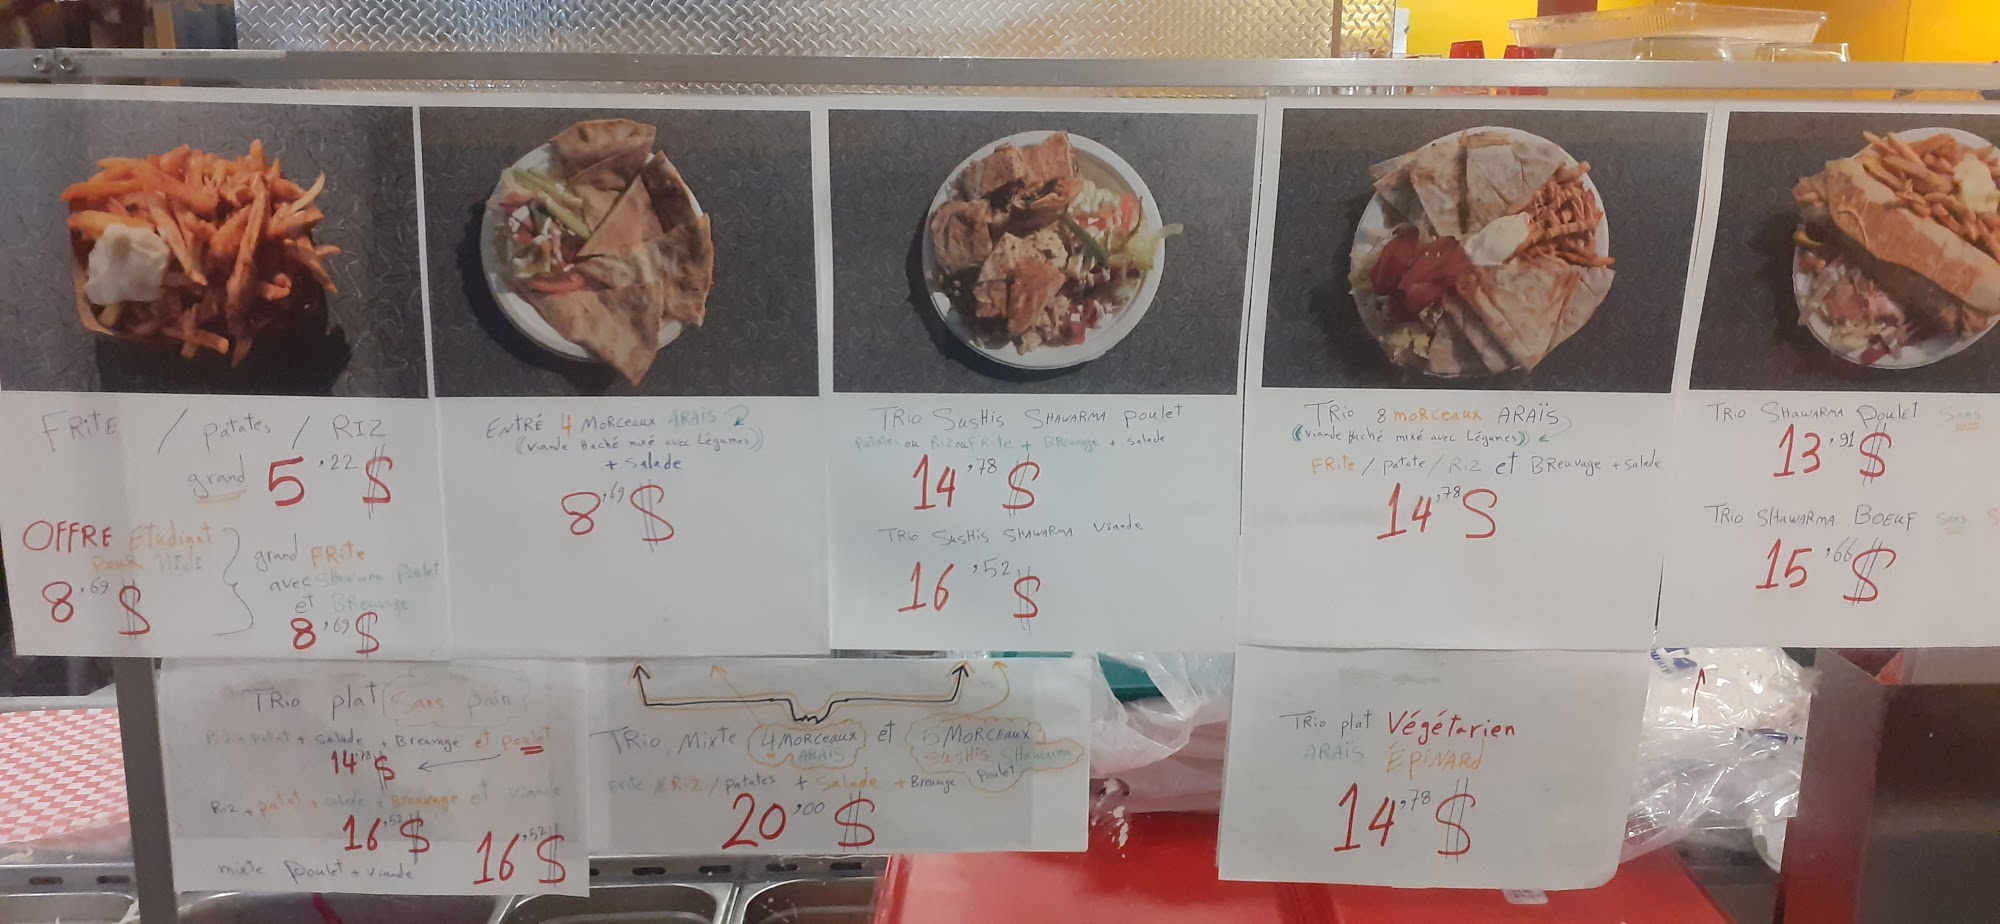 FRITE / patates / RIZ
grand 5,22 $
OFFRE Étudiant
pour Midi
8,69 $
grand FRite
avec Shawarma Poulet
et BReuvage
8,69 $
ENTRÉ 4 MORCEAUX ARAÏS
(viande Haché mixé avec Légumes))
+ Salade
8,69 $
TRio SusHis SHAWARMA poulet
patates ou Riz ou FRite + BReuvage + salade
14,78 $
TRio SusHis SHAWARMA viande
16,52 $
TRio 8 moRCeaux ARAÏS
((viande Haché mixé avec Légumes))
FRite / patate / RiZ et BReuvage + salade
14,78 $
TRio SHAWARMA Poulet Sans
13,91 $
TRio SHAWARMA BOEUF Sans S
15,66 $
TRio plat Sans pain
Riz + patat + salade + BReuvage et poulet
14,78 $
Riz + patat + salade + BReuvage et viande
16,52 $
mixte poulet + viande
16,52 $
TRio Mixte 4 MORCeaux ARAÏS et 5 MORCeaux SusHis SHawarma poulet
FRite / Riz / patates + Salade + BReuvage
20,00 $
TRio plat Végétarien
ARAÏS ÉPINARD
14,78 $